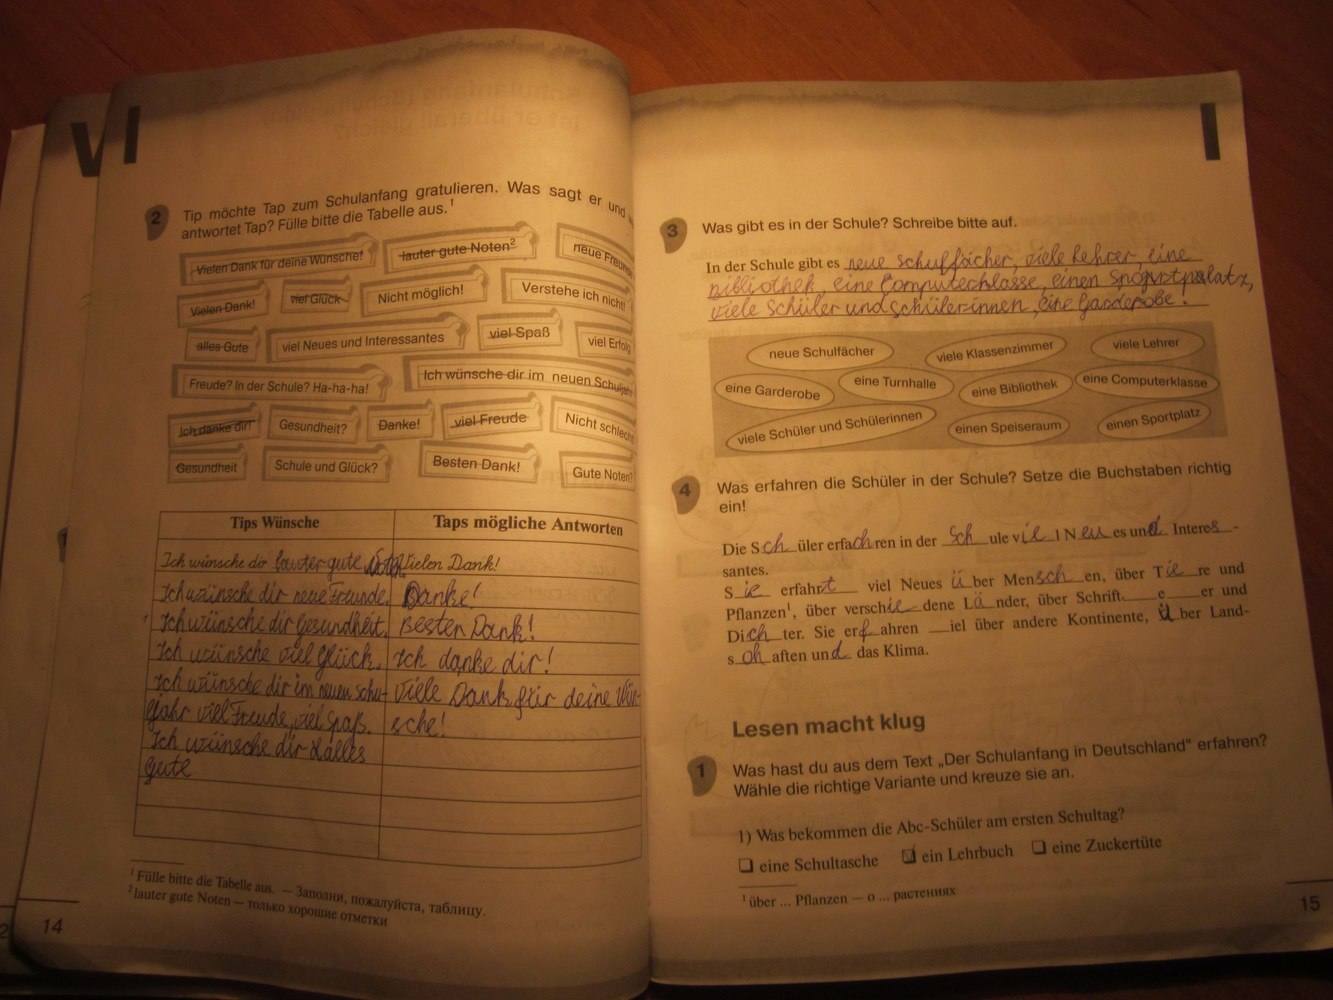 VI
2
Tip möchte Tap zum Schulanfang gratulieren. Was sagt er und
antwortet Tap? Fülle bitte die Tabelle aus.¹
Vielen Dank für deine Wünsche!
lauter gute Noten²
neue Freunde
Vielen Dank!
viel Glück
Nicht möglich!
Verstehe ich nicht!
alles Gute
viel Neues und Interessantes
viel Spaß
viel Erfolg
Freude? In der Schule? Ha-ha-ha!
Ich wünsche dir im neuen Schuljahr
Ich danke dir!
Gesundheit?
Danke!
viel Freude
Nicht schlecht
Gesundheit
Schule und Glück?
Besten Dank!
Gute Noten?
Tips Wünsche
Taps mögliche Antworten
Ich wünsche dir lauter gute Noten
Vielen Dank!
Ich wünsche dir neue Freunde.
Danke!
Ich wünsche dir Gesundheit.
Besten Dank!
Ich wünsche viel Glück.
Ich danke dir!
Ich wünsche dir im neuen Schu-
Viele Dank für deine Wün-
ljahr viel Freude, viel Spaß.
sche!
Ich wünsche dir alles
gute
¹ Fülle bitte die Tabelle aus. — Заполни, пожалуйста, таблицу.
² lauter gute Noten — только хорошие отметки
14
I
3
Was gibt es in der Schule? Schreibe bitte auf.
In der Schule gibt es neue Schulfächer, viele Lehrer, eine
Bibliothek, eine Computerklasse, einen Sportplatz,
viele Schüler und Schülerinnen, eine Garderobe.
neue Schulfächer
viele Klassenzimmer
viele Lehrer
eine Garderobe
eine Turnhalle
eine Bibliothek
eine Computerklasse
viele Schüler und Schülerinnen
einen Speiseraum
einen Sportplatz
4
Was erfahren die Schüler in der Schule? Setze die Buchstaben richtig
ein!
Die Sch üler erfachren in der Sch ule vie l Neu es und Interes -
santes.
Sie erfahrt viel Neues über Menschen, über Tiere und
Pflanzen¹, über verschiedene Länder, über Schrift__e__er und
Dichter. Sie erfahren __iel über andere Kontinente, über Land-
schaften und das Klima.
Lesen macht klug
1
Was hast du aus dem Text „Der Schulanfang in Deutschland“ erfahren?
Wähle die richtige Variante und kreuze sie an.
1) Was bekommen die Abc-Schüler am ersten Schultag?
❑ eine Schultasche ☑ ein Lehrbuch ❑ eine Zuckertüte
¹ über ... Pflanzen — о ... растениях
15